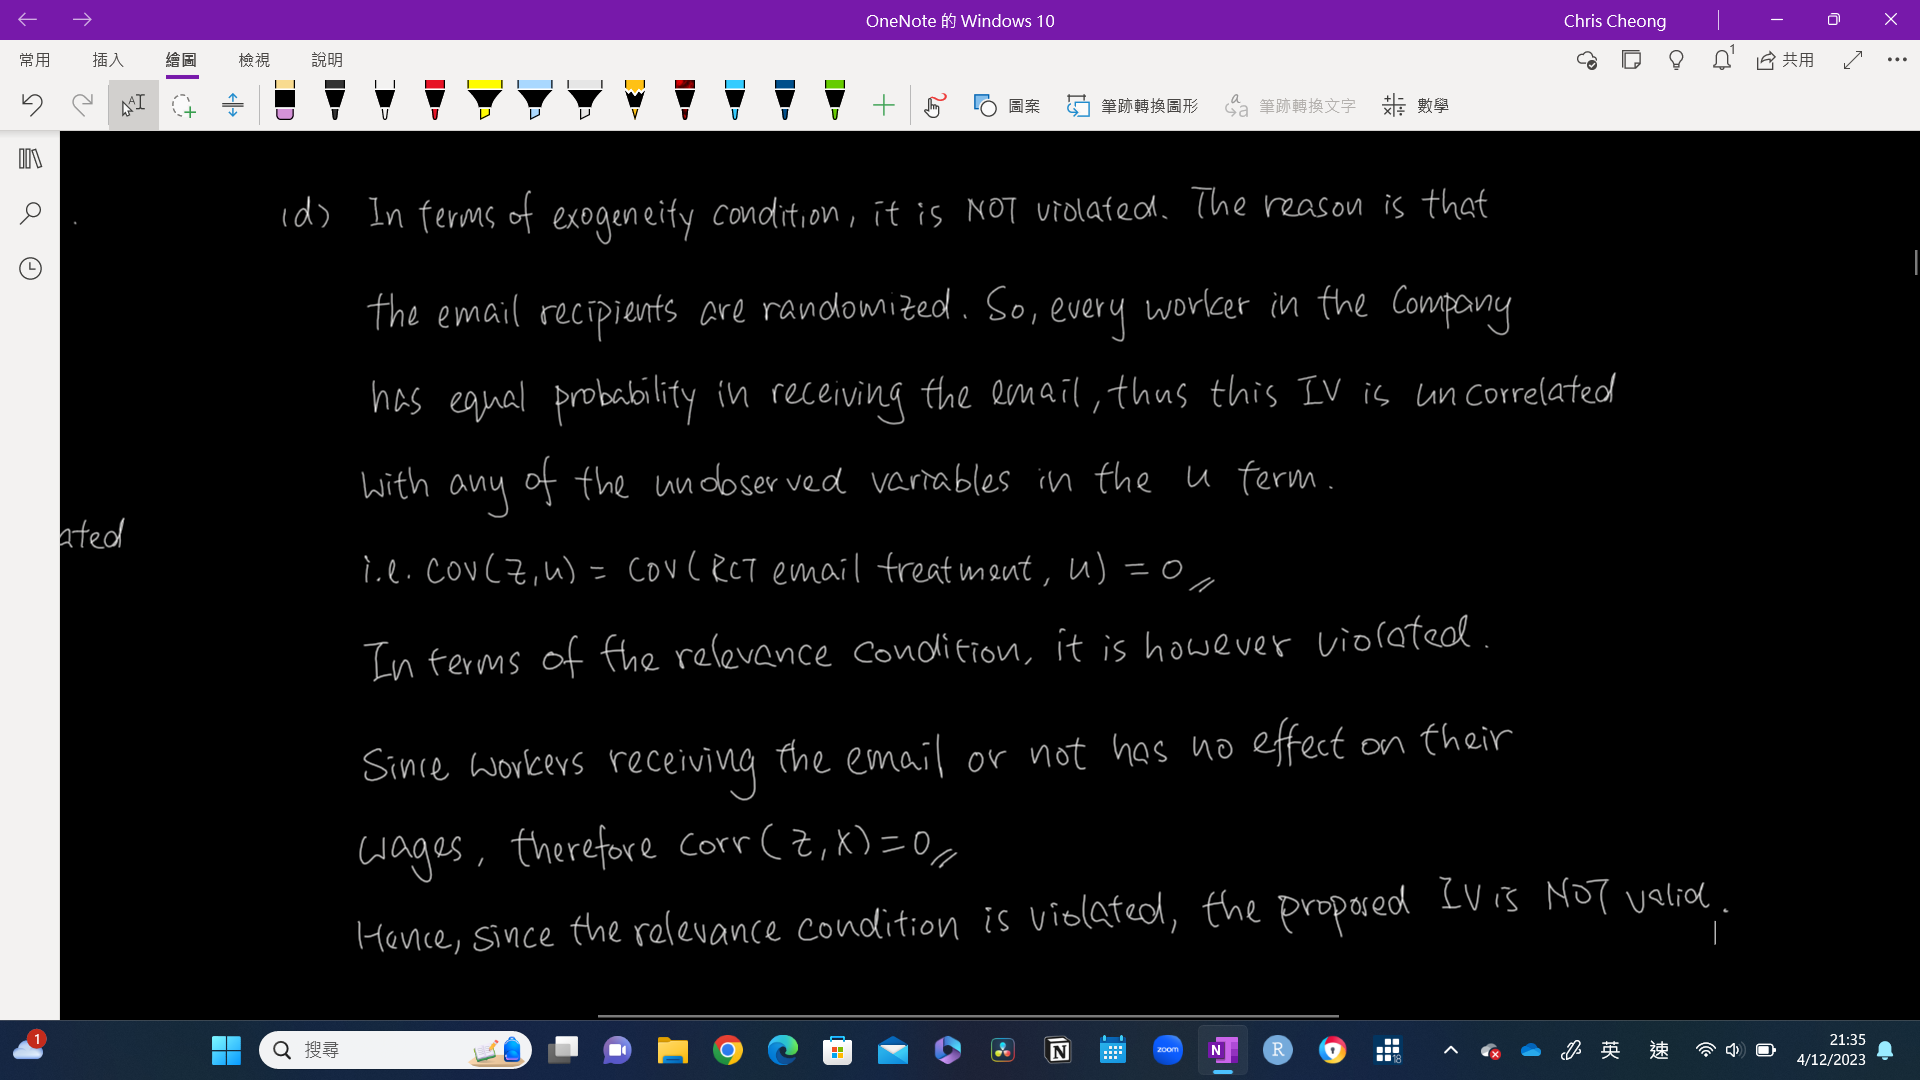 OneNote 的 Windows 10
Chris Cheong
常用 插入 繪圖 檢視 說明
1
共用
圖案 筆跡轉換圖形 筆跡轉換文字 數學
(d) In terms of exogeneity condition, it is NOT violated. The reason is that
the email recipients are randomized. So, every worker in the Company
has equal probability in receiving the email, thus this IV is uncorrelated
with any of the unobserved variables in the u term.
ated
i.e. COV(Z,u) = COV(RCT email treatment, u) = 0
In terms of the relevance condition, it is however violated.
Since workers receiving the email or not has no effect on their
wages, therefore corr(Z,X)=0
Hence, since the relevance condition is violated, the proposed IV is NOT valid.
1
搜尋
zoom
N
R
18
英
速
21:35
4/12/2023